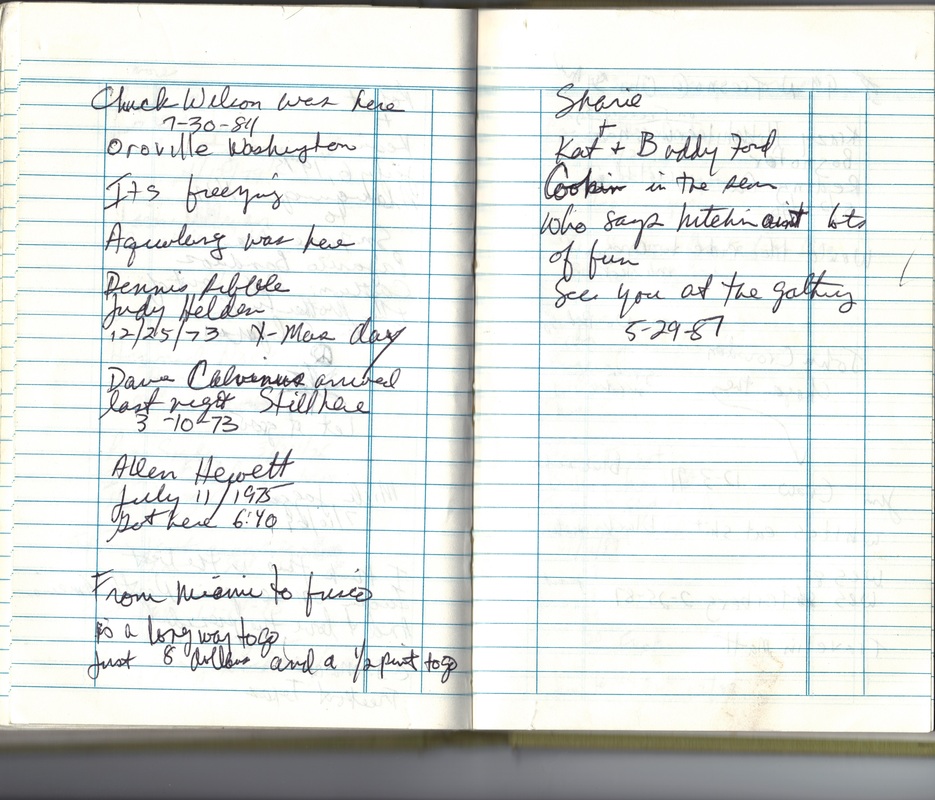 Chuck Wilson was here
7-30-84
Oroville Washington
Its freezing
Aqualung was here
Dennis
Judy Helden
12/25/73 X-Mas day
Dave Calvinus arrived
last night Still here
3-10-73
Allen Hewett
July 11/1975
Got here 6:40
From Miami to frisco
is a long way to go
Just 8 dollars and a 1/2 pint to go
Sharie
+
Kat + Buddy Ford
Cookin in the
who says hitchin aint lots
of fun
See you at the
5-29-87